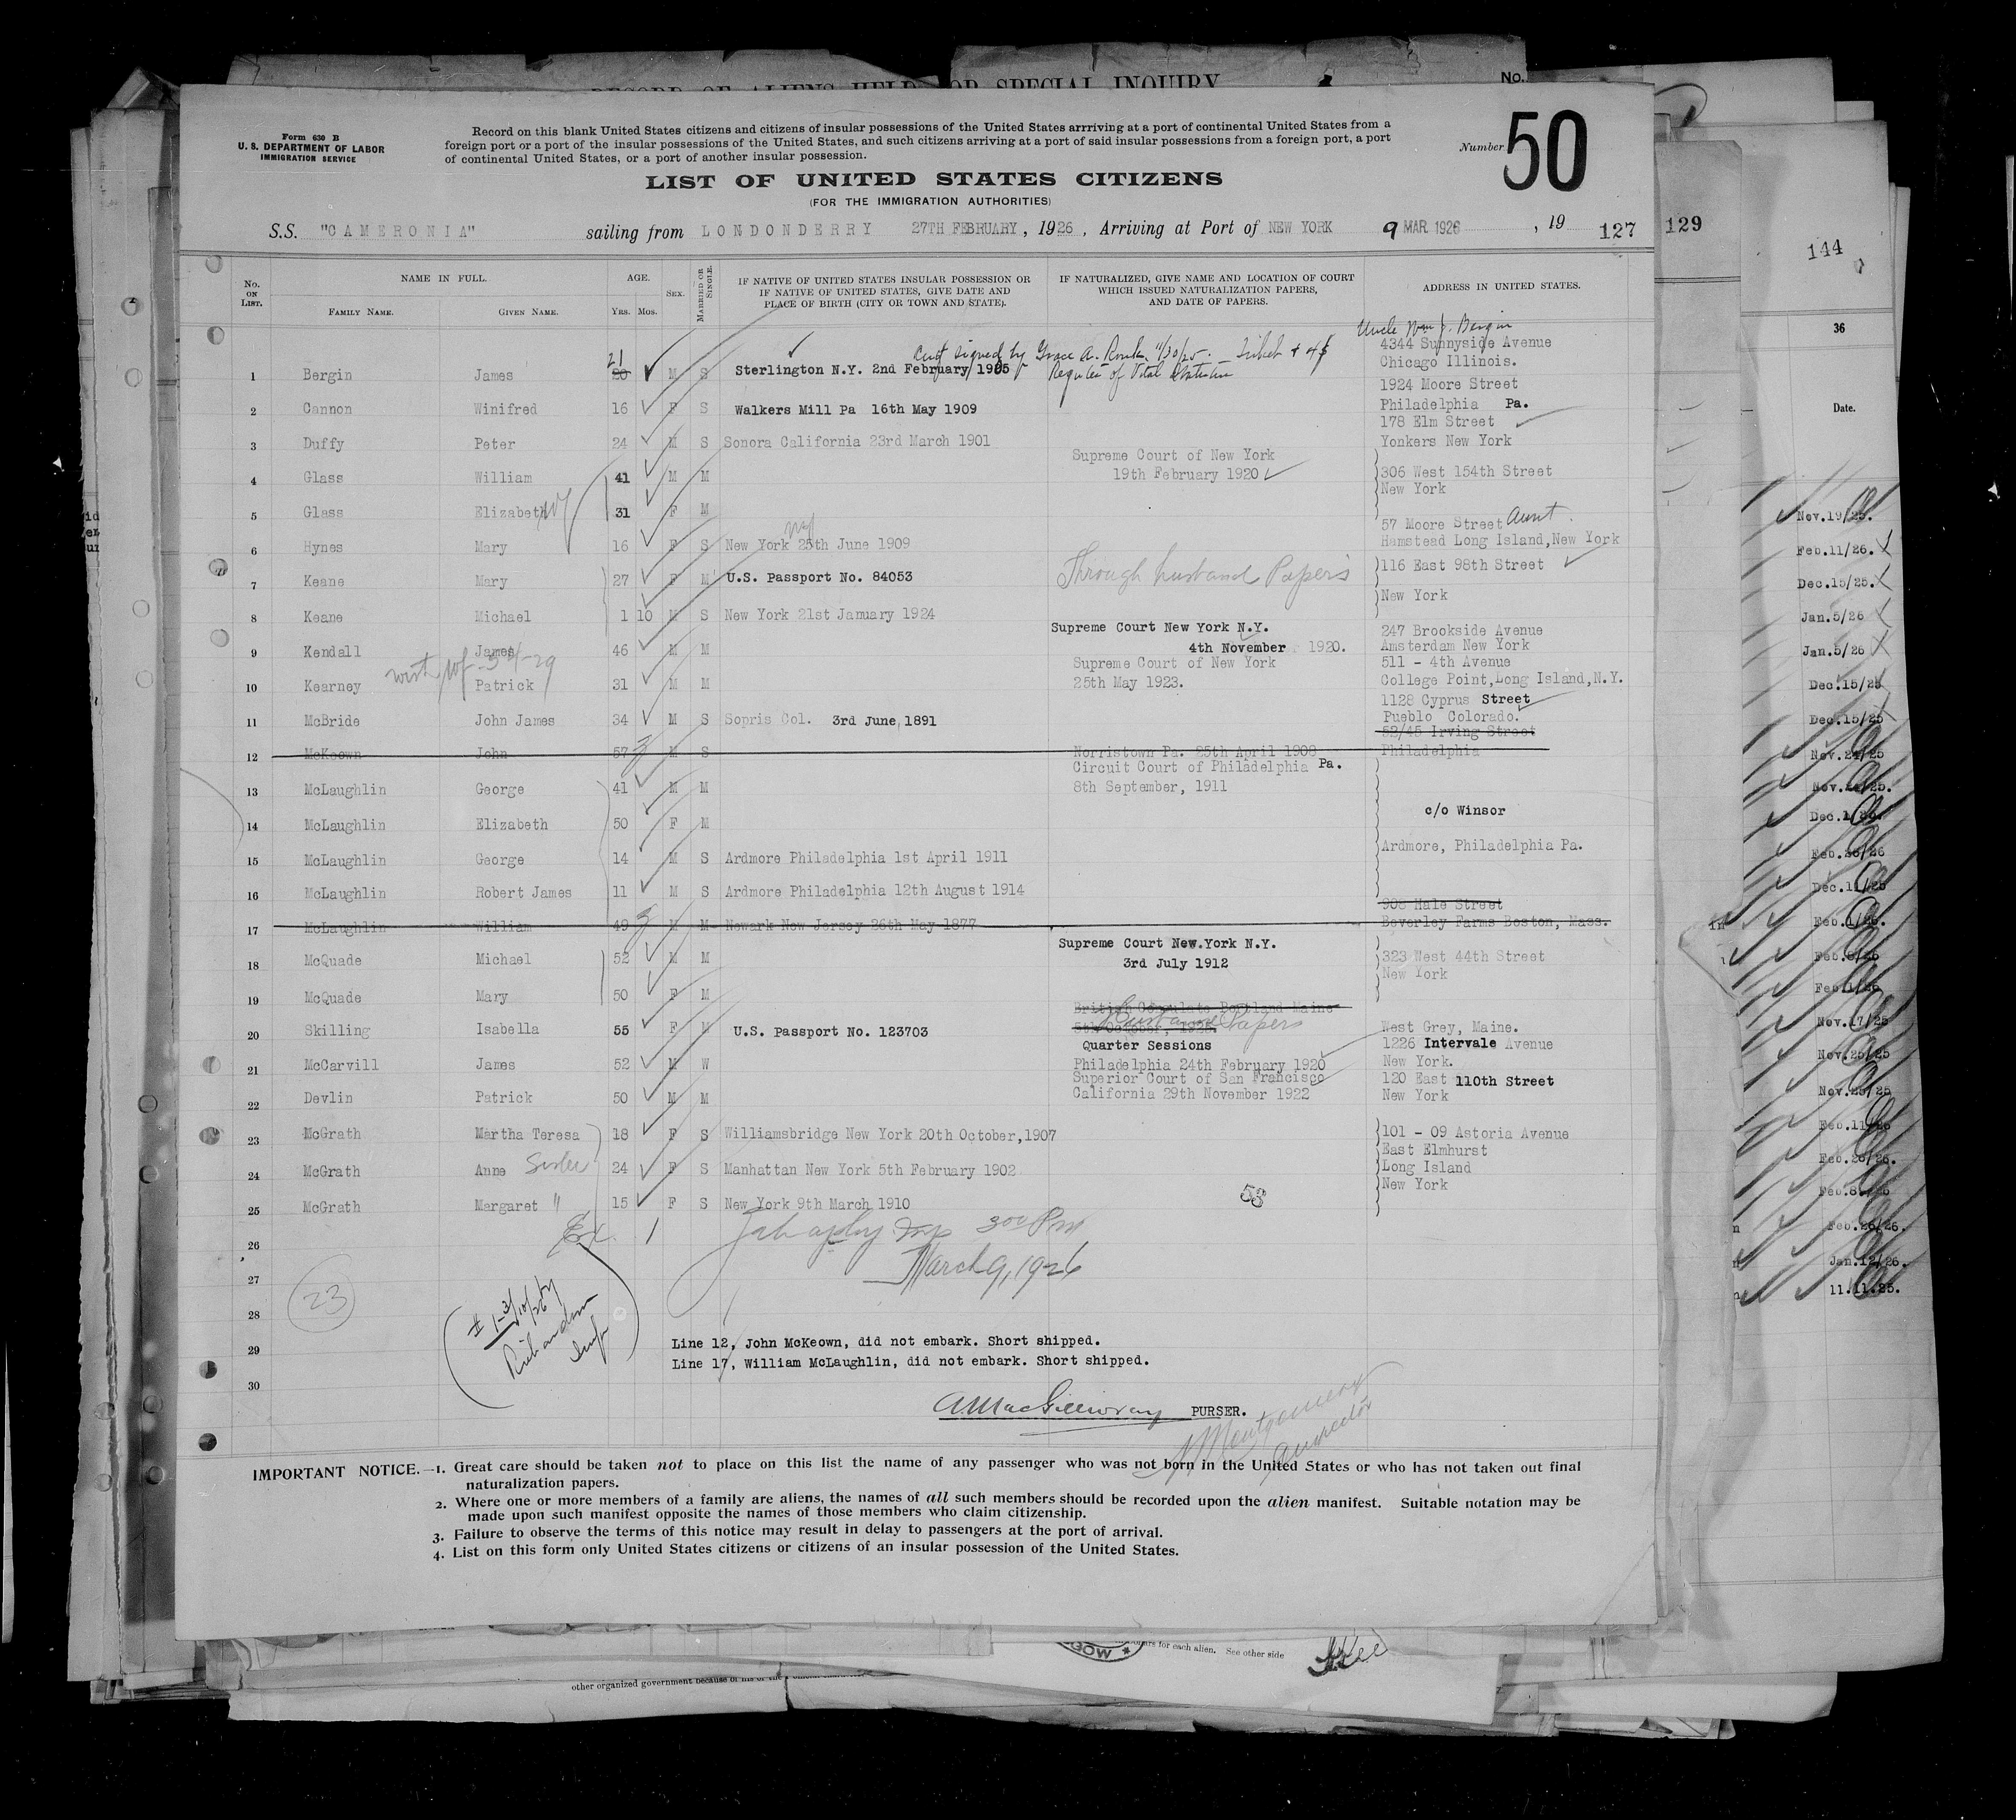 RECORD OF ALIENS HELD FOR SPECIAL INQUIRY
No.
Form 630 B
U. S. DEPARTMENT OF LABOR
IMMIGRATION SERVICE
Record on this blank United States citizens and citizens of insular possessions of the United States arrriving at a port of continental United States from a
foreign port or a port of the insular possessions of the United States, and such citizens arriving at a port of said insular possessions from a foreign port, a port
of continental United States, or a port of another insular possession.
Number 50
LIST OF UNITED STATES CITIZENS
(FOR THE IMMIGRATION AUTHORITIES)
S.S. "CAMERONIA" sailing from LONDONDERRY 27TH FEBRUARY, 1926, Arriving at Port of NEW YORK 9 MAR. 1926, 19 127
129
144
No. ON LIST.
NAME IN FULL.
FAMILY NAME.
GIVEN NAME.
AGE.
YRS. MOS.
SEX.
MARRIED OR SINGLE.
IF NATIVE OF UNITED STATES INSULAR POSSESSION OR
IF NATIVE OF UNITED STATES, GIVE DATE AND
PLACE OF BIRTH (CITY OR TOWN AND STATE).
IF NATURALIZED, GIVE NAME AND LOCATION OF COURT
WHICH ISSUED NATURALIZATION PAPERS,
AND DATE OF PAPERS.
ADDRESS IN UNITED STATES.
Uncle Wm J. Bergin
4344 Sunnyside Avenue
signed by Grace A. 11/30/25.
21
1 Bergin James 20 M S Sterlington N.Y. 2nd February 1905 of Vital Chicago Illinois.
1924 Moore Street
2 Cannon Winifred 16 F S Walkers Mill Pa 16th May 1909 Philadelphia Pa.
178 Elm Street
3 Duffy Peter 24 M S Sonora California 23rd March 1901 Yonkers New York
Supreme Court of New York
4 Glass William 41 M M 19th February 1920 306 West 154th Street
New York
5 Glass Elizabeth wf 31 F M
57 Moore Street Aunt.
6 Hynes Mary 16 F S New York 25th June 1909 Hamstead Long Island,New York
7 Keane Mary 27 F M U.S. Passport No. 84053 Through husband Papers 116 East 98th Street
New York
8 Keane Michael 1 10 M S New York 21st January 1924
Supreme Court New York N.Y.
247 Brookside Avenue
9 Kendall James 46 M M 4th November 1920. Amsterdam New York
Supreme Court of New York 511 - 4th Avenue
10 Kearney Patrick 31 M M 25th May 1923. College Point,Long Island,N.Y.
1128 Cyprus Street
11 McBride John James 34 M S Sopris Col. 3rd June,1891 Pueblo Colorado.
52/45 Irving Street
12 McKeown John 57 M S Norristown Pa. 25th April 1908 Philadelphia
Circuit Court of Philadelphia Pa.
13 McLaughlin George 41 M M 8th September, 1911
c/o Winsor
14 McLaughlin Elizabeth 50 F M
Ardmore, Philadelphia Pa.
15 McLaughlin George 14 M S Ardmore Philadelphia 1st April 1911
16 McLaughlin Robert James 11 M S Ardmore Philadelphia 12th August 1914
905 Hale Street
17 McLaughlin William 49 M M Newark New Jersey 26th May 1877 Beverley Farms Boston, Mass.
Supreme Court New.York N.Y.
18 McQuade Michael 52 M M 3rd July 1912 323 West 44th Street
New York
19 McQuade Mary 50 F M
British Consulate Portland Maine
20 Skilling Isabella 55 F M U.S. Passport No. 123703 5th October, 1925. Papers West Grey, Maine.
Quarter Sessions 1226 Intervale Avenue
21 McCarvill James 52 M W Philadelphia 24th February 1920 New York.
Superior Court of San Francisco 120 East 110th Street
22 Devlin Patrick 50 M M California 29th November 1922 New York
23 McGrath Martha Teresa 18 F S Williamsbridge New York 20th October,1907 101 - 09 Astoria Avenue
East Elmhurst
24 McGrath Anne Sister 24 F S Manhattan New York 5th February 1902 Long Island
New York
25 McGrath Margaret " 15 F S New York 9th March 1910
53
26
March 9, 1926
27
23
28
29
30
Line 12, John McKeown, did not embark. Short shipped.
Line 17, William McLaughlin, did not embark. Short shipped.
A MacGillivray PURSER.
IMPORTANT NOTICE.—1. Great care should be taken not to place on this list the name of any passenger who was not born in the United States or who has not taken out final
naturalization papers.
2. Where one or more members of a family are aliens, the names of all such members should be recorded upon the alien manifest. Suitable notation may be
made upon such manifest opposite the names of those members who claim citizenship.
3. Failure to observe the terms of this notice may result in delay to passengers at the port of arrival.
4. List on this form only United States citizens or citizens of an insular possession of the United States.
36
Date.
Nov.19/25.
Feb.11/26.
Dec.15/25.
Jan.5/26
Jan.5/26
Dec.15/25
Dec.15/25
Nov.24/25
Feb.26/26
Dec.11/25
Feb.1/26.
Nov.17/25
Nov.25/25
Nov.25/25
Feb.11/26
Feb.26/26.
Feb.26/26.
Jan.12/26.
11.11.25.
for each alien. See other side
other organized government because of his or the